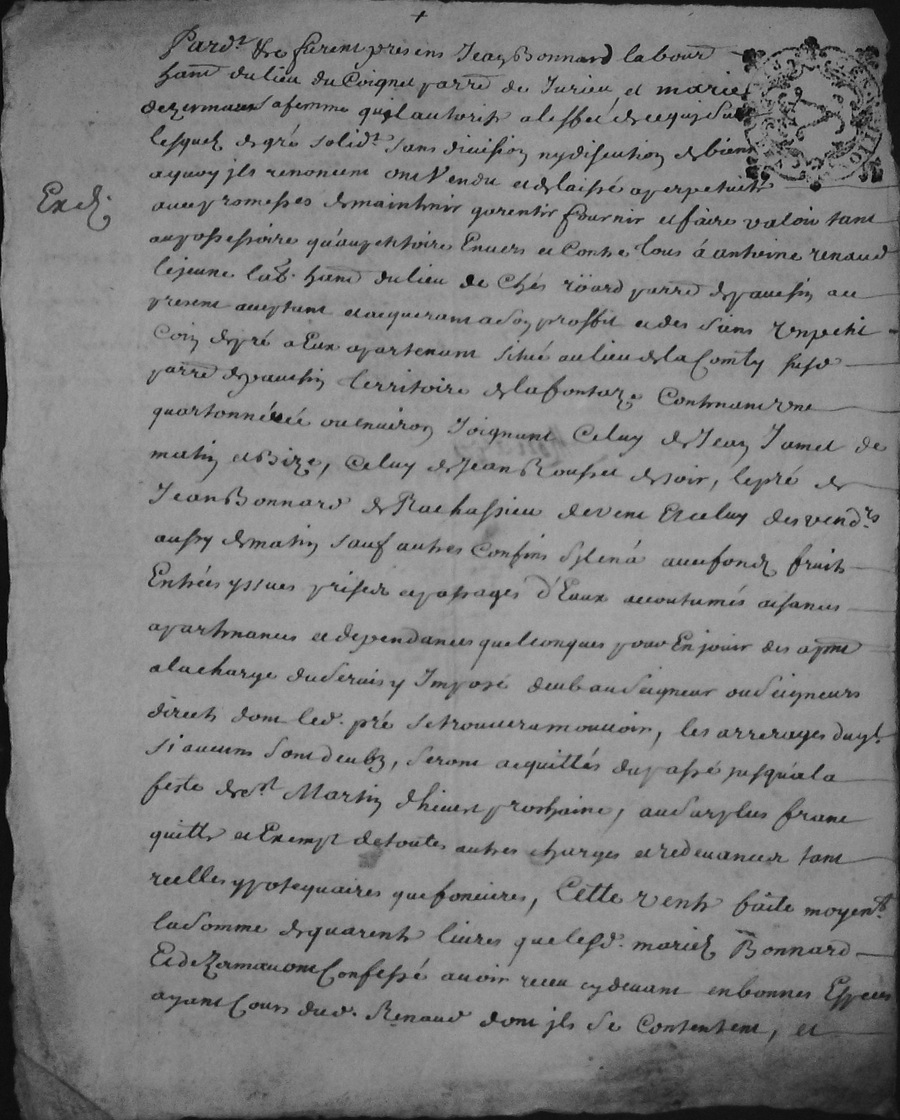 +
Pard.t Nre furent presens Jean Bonnard labour
hant du lieu du Coignet parre de Jurieu et marie
dezermaux sa femme quil autorise a leffet de ce quy suit
lesquelz de gré solid.t sans division ny discution de biens
a quoy jls renoncent ont Vendu et delaissé a perpetuité
Exd.
avec promesses de maintenir garentir fournir et faire valoir tant
au possessoire qu'au petitoire Envers et Contre tous à antoine renaud
le jeune lab.r hant du lieu de Chés parre de pavesin au
present acceptant et acquerant a son proffit et des siens Un petit
Coin de pré a Eux apartenant situé au lieu de la Comty susd
parre de pavesin territoire de la fontaze Contenant une
quartonnée ou environ Joignant Celuy de Jean Jamet de
matin et Bize, Celuy de Jean Rousset de soir, le pré de
Jean Bonnard de Rachassieu de vent Et celuy des vend.rs
aussy de matin sauf autres Confins sylena avec fondz fruits
Entrées yssues prises et passages d'Eaux accoutumés aisances
apartenances et dependances quelconques pour En jouir des apnt
a la charge du Servis y Imposé deub au Seigneur ou Seigneurs
directs dont led. pré se trouvera mouvoir, les arrerages duql.
si aucuns sont deubz, seront acquittés du passé jusqu'a la
feste de St Martin d'hiver prochaine, au surplus franc
quitte et Exempt de toutes autres charges et redevances tant
reelles ypotequaires que foncieres, Cette vente faite moyen.t
la somme de quarente livres que lesd. mariez Bonnard
Et dezermaux ont Confessé avoir receu cydevant en bonnes Especes
ayant Cours dud. Renaud dont jls se Contentent, et